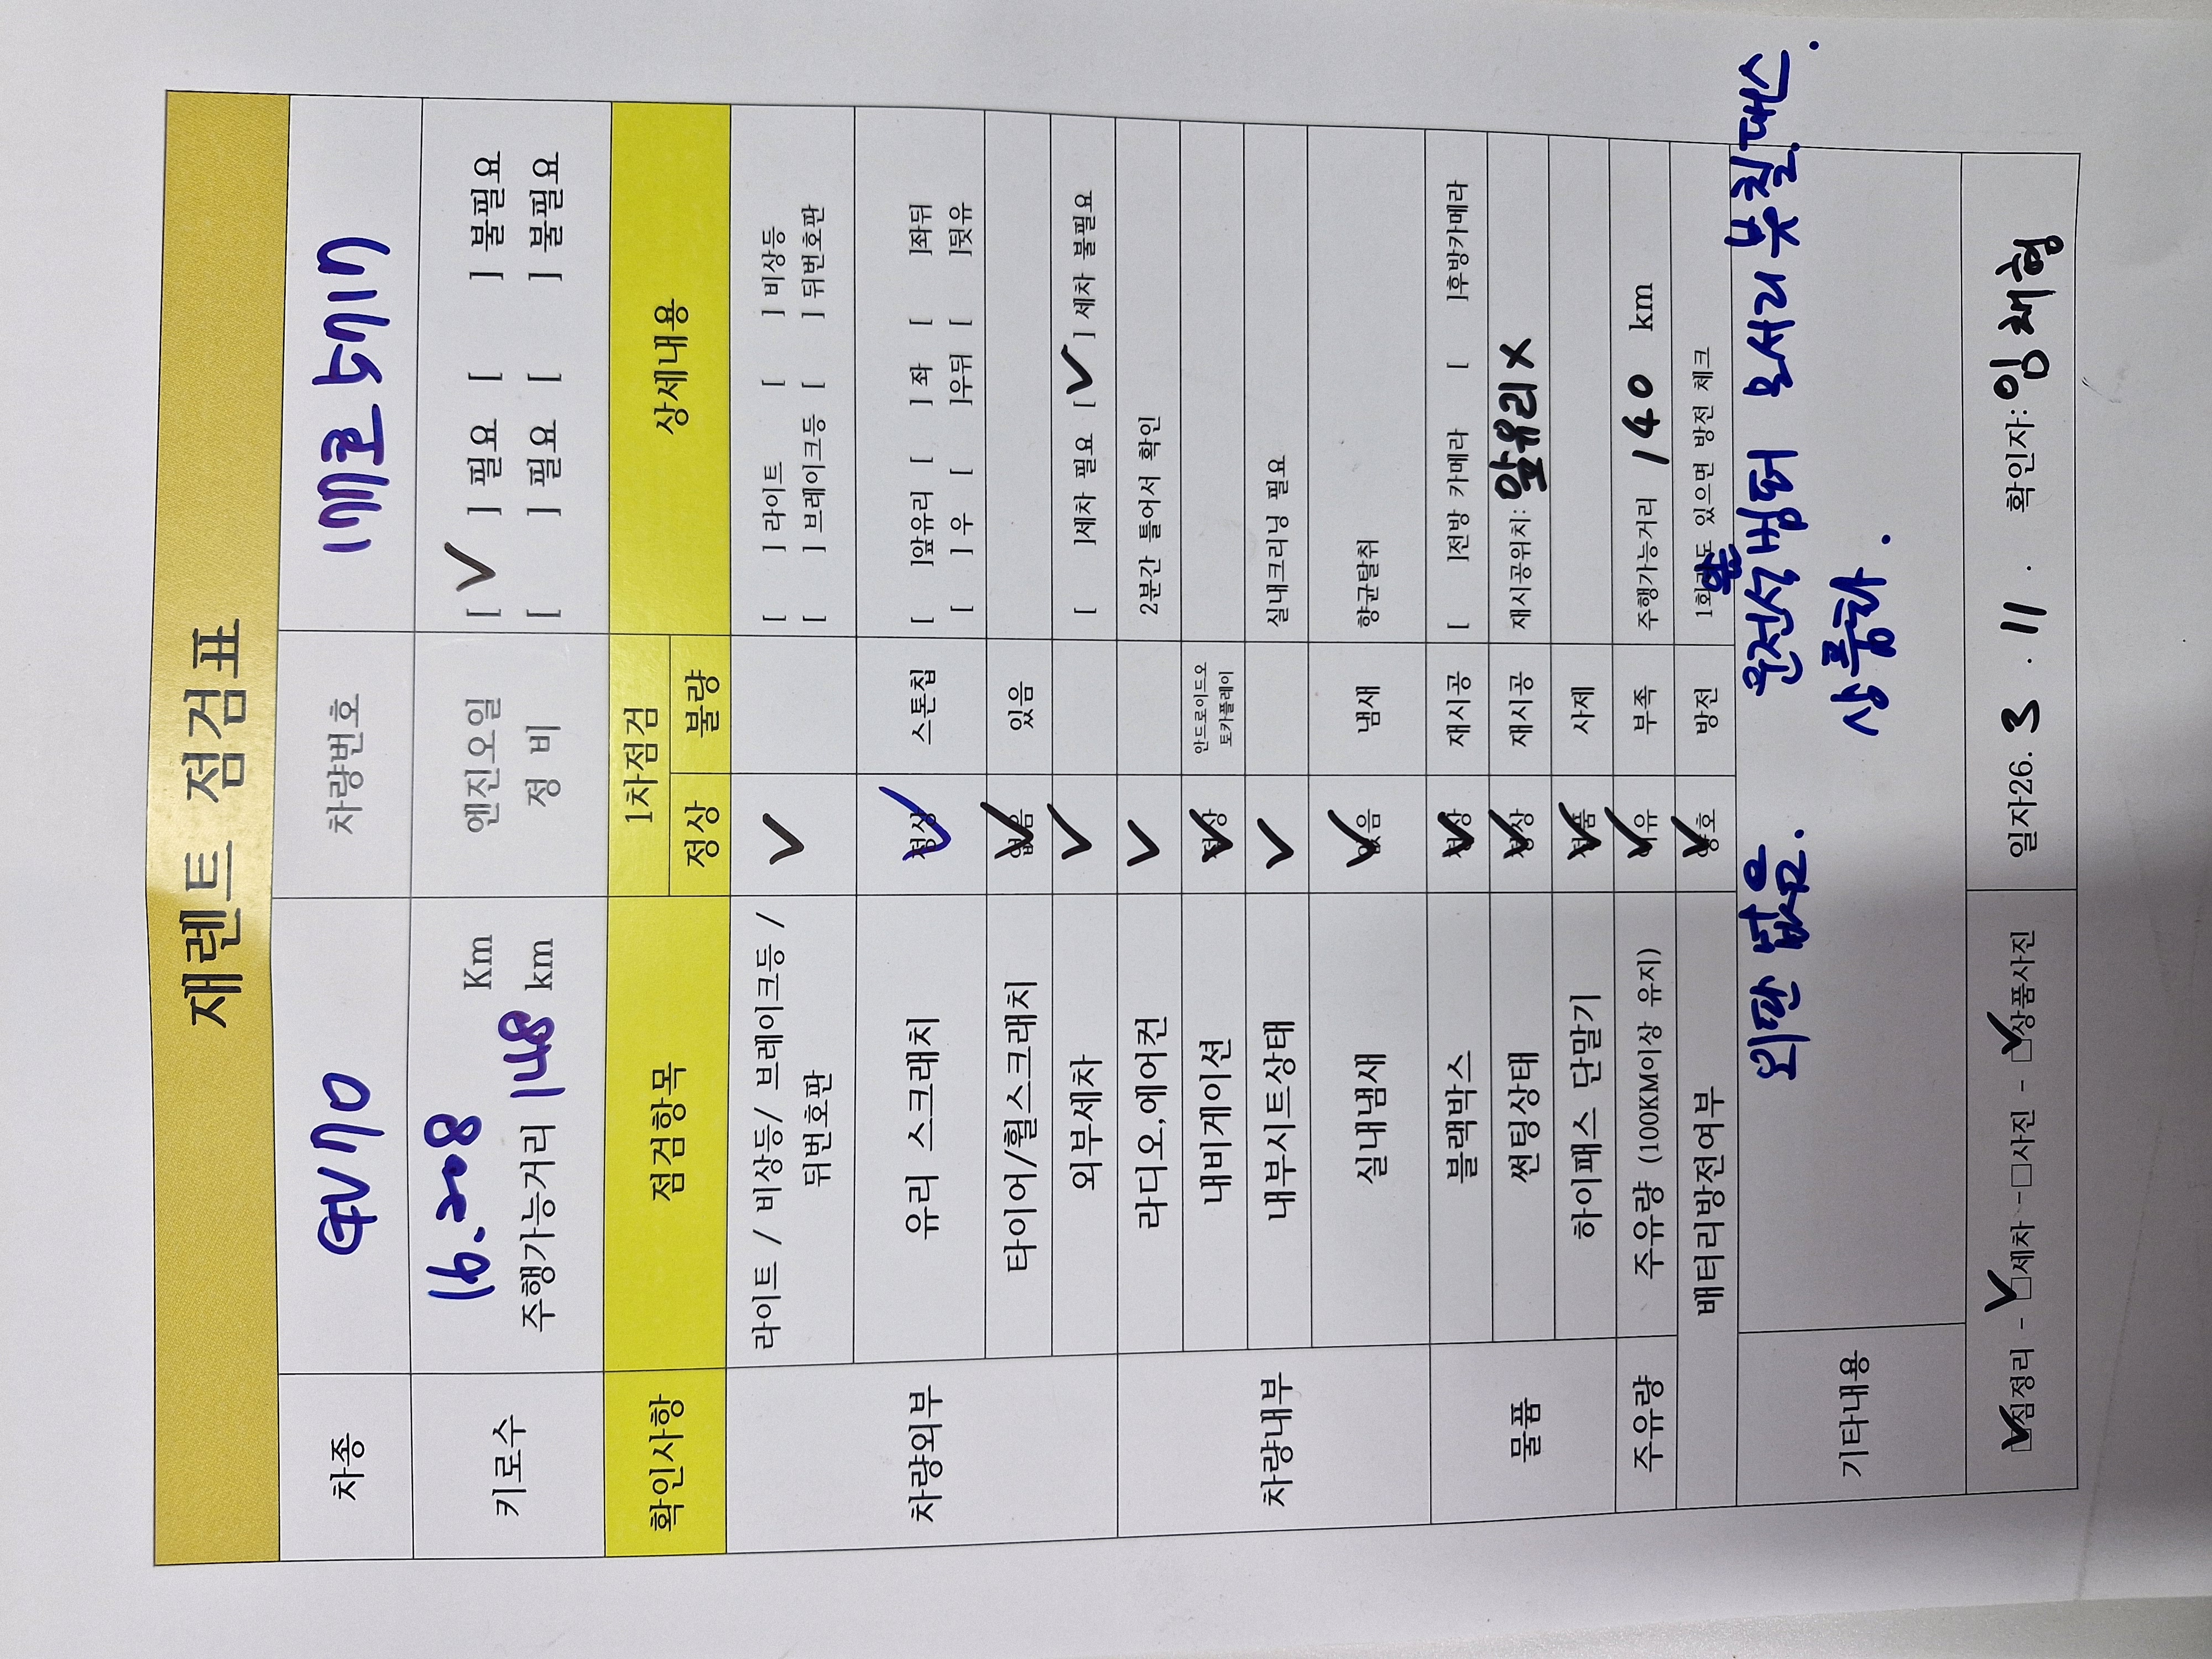 재렌트 점검표
차종 GV70 차량번호
키로수 16.208 Km 엔진오일 [ V ] 필요 [ ] 불필요
주행가능거리 148 km 정 비 [ ] 필요 [ ] 불필요
확인사항 점검항목 1차점검 상세내용
정상 불량
차량외부 라이트 / 비상등/ 브레이크등 / V [ ] 라이트 [ ] 비상등
뒤번호판 [ ] 브레이크등 [ ] 뒤번호판
유리 스크래치 정상 V 스톤칩 [ ]앞유리 [ ] 좌 [ ]좌뒤
[ ] 우 [ ]우뒤 [ ]뒷유
타이어/휠스크래치 없음 V 있음
외부세차 V [ ]세차 필요 [ V ] 세차 불필요
차량내부 라디오,에어컨 V 2분간 틀어서 확인
내비게이션 정상 V 안드로이드오
토카플레이
내부시트상태 V 실내크리닝 필요
실내냄새 없음 V 냄새 향균탈취
물품 블랙박스 정상 V 재시공 [ ]전방 카메라 [ ]후방카메라
썬팅상태 정상 V 재시공 재시공위치: 앞유리 X
하이패스 단말기 정품 V 사제
주유량 주유량 (100KM이상 유지) 여유 V 부족 주행가능거리 140 km
배터리방전여부 양호 V 방전 있으면 방전 체크
기타내용 외판 없음. 운전석 범퍼 모서리 붓칠.
상품화.
V 짐정리 - V 세차 - □사진 - V 상품사진 일자26. 3 . 11 . 확인자: 임채형